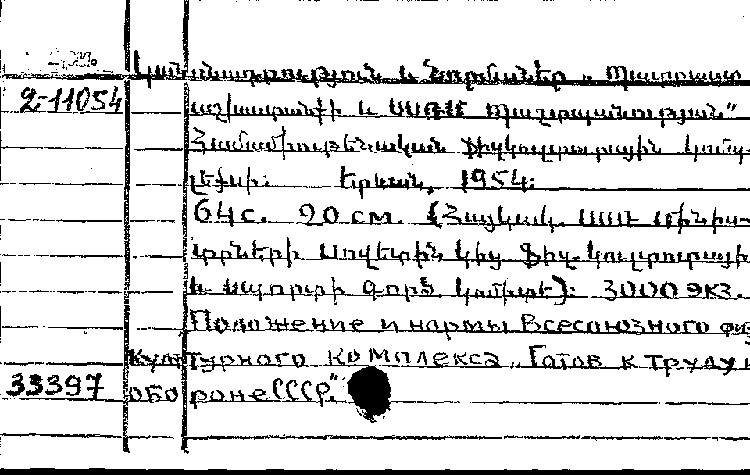 Կանոնադրություն և նորմաներ „Պատրաստ
2-11054 աշխատանքի և ՍՍՌՄ պաշտպանության"
Համամիութենական ֆիզկուլտուրային կոմպ-
լեքսի: Երևան, 1954:
64с. 20см. (Հայկակ. ՍՍՌ Մինիս-
տրների Սովետին կից ֆիզ. կուլտուրայի
և սպորտի գործ. կոմիտե): 3000 экз.
Положение и нормы Всесоюзного физ
культурного комплекса „Готов к труду и
33397 обороне СССР."